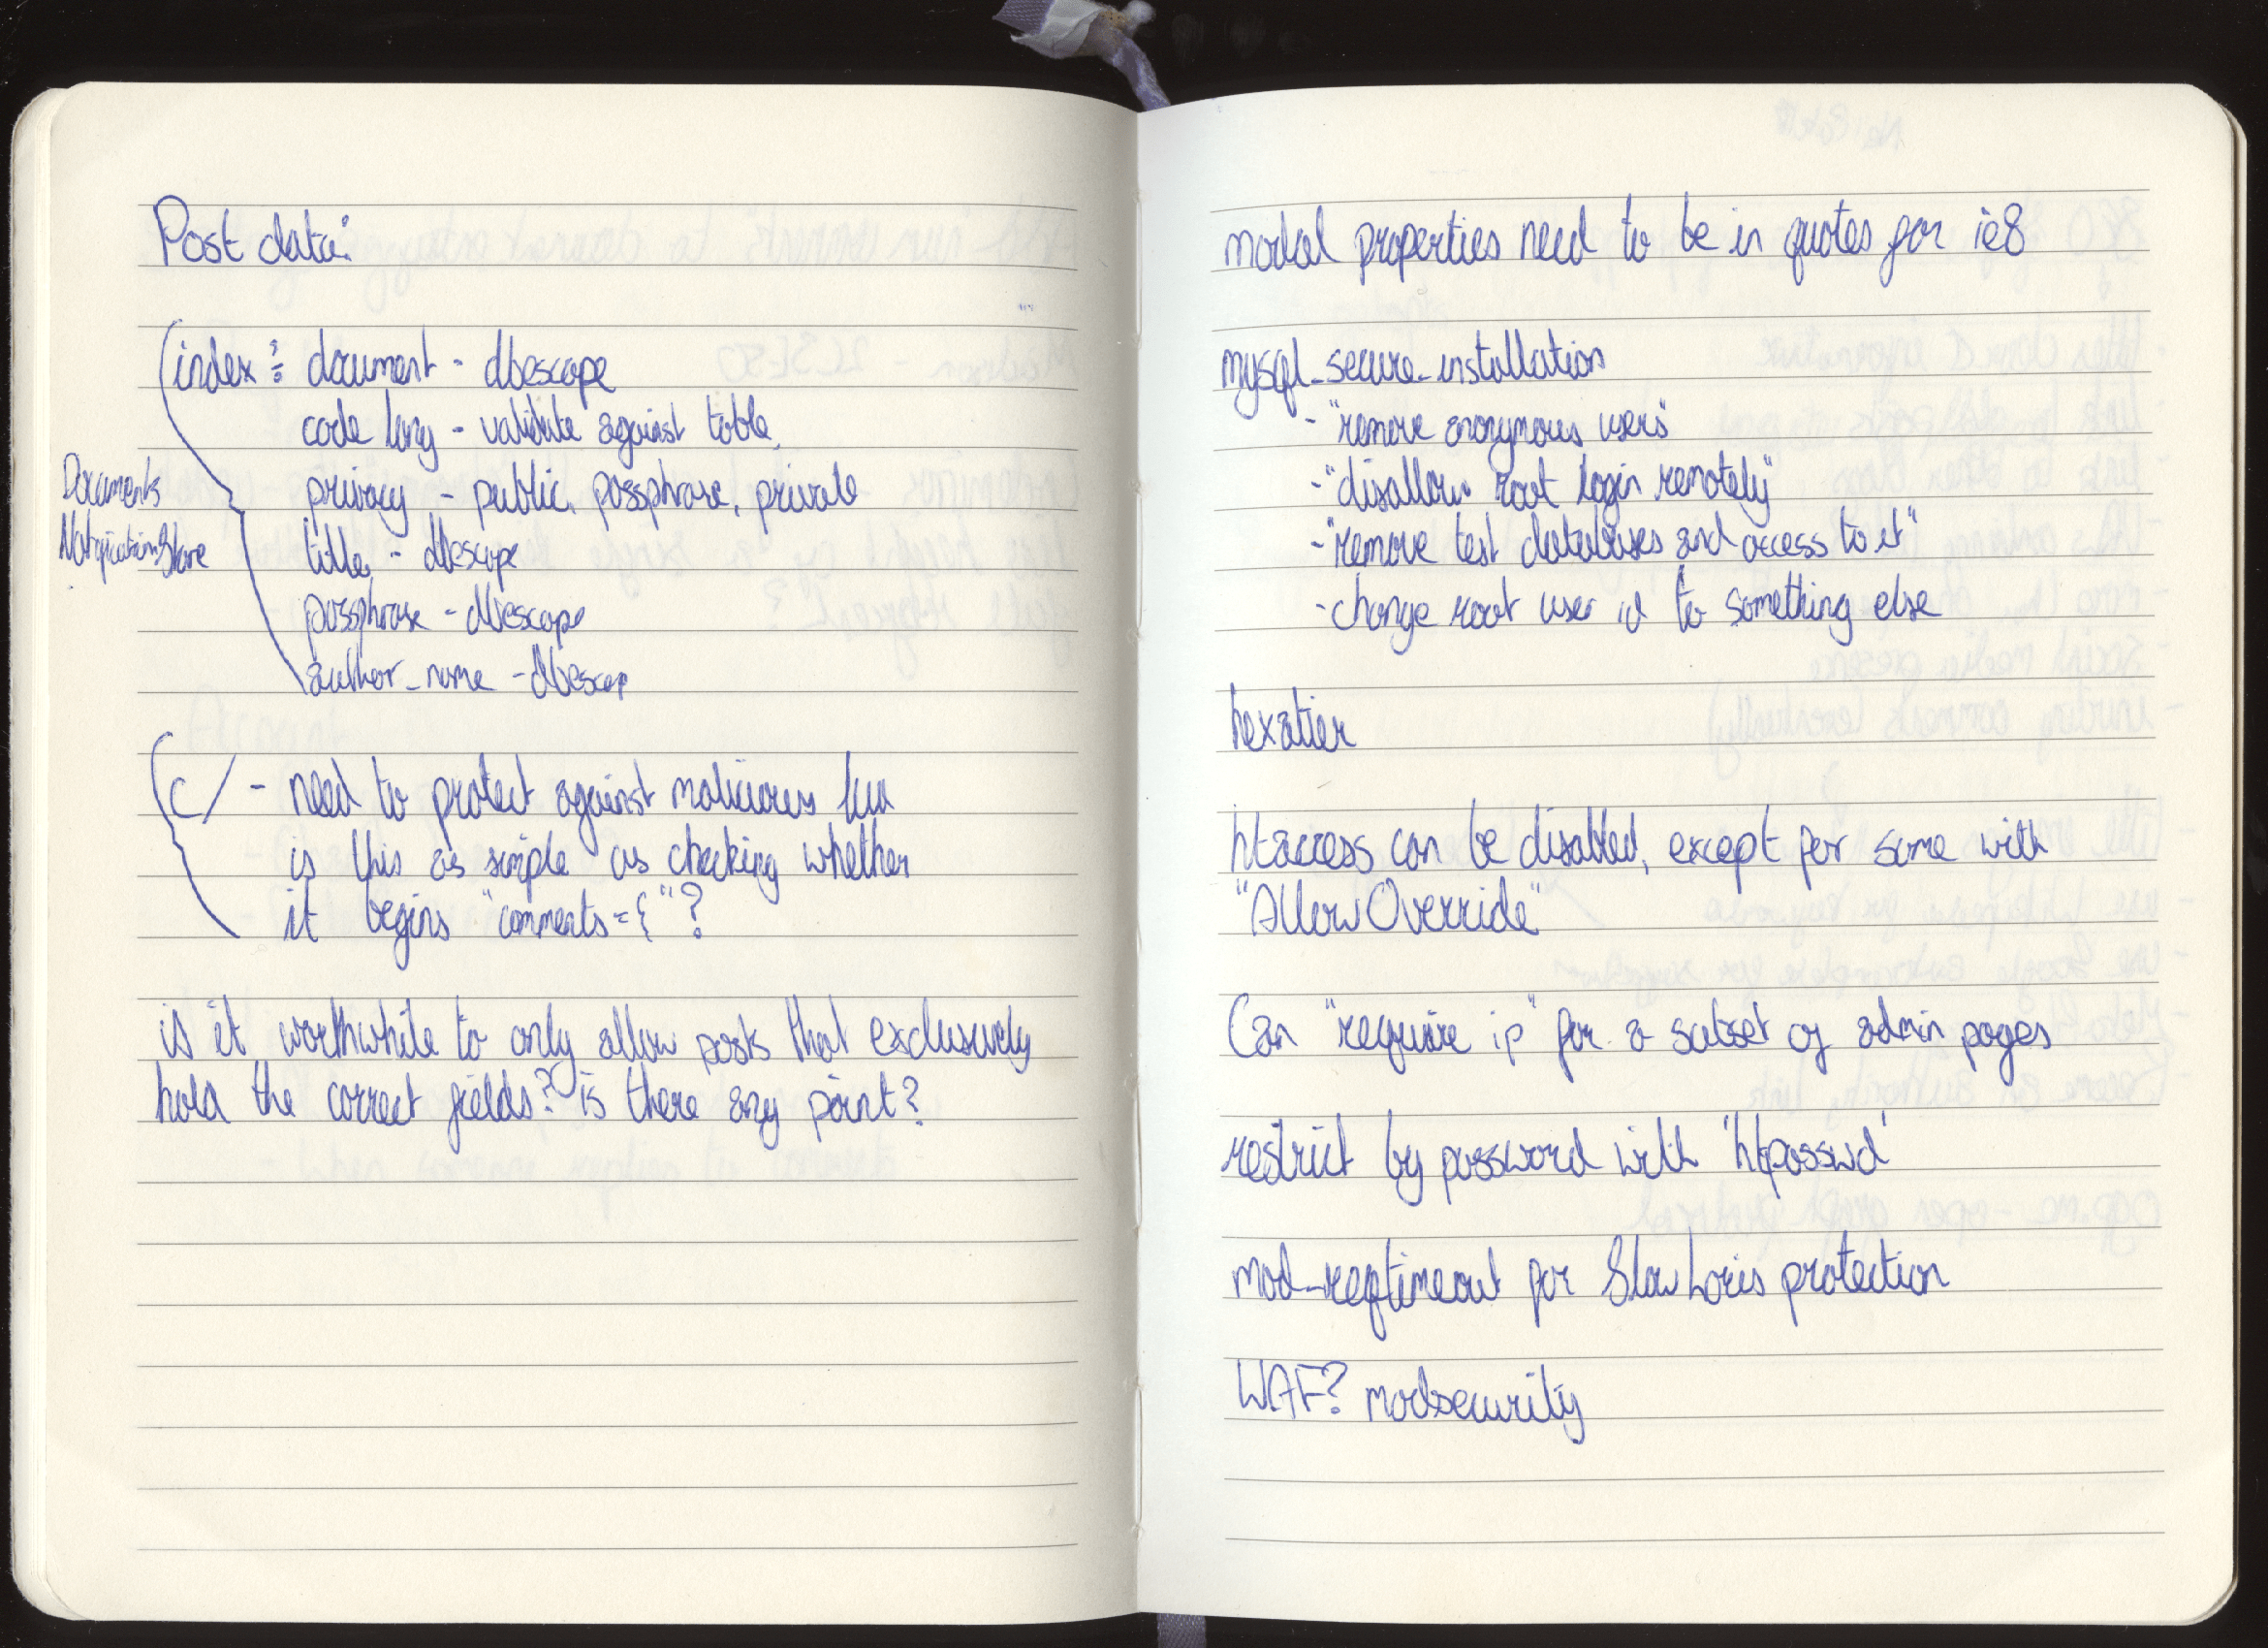 Post data:
index : document - dbescape
code lang - validate against table
Documents
privacy - public, passphrase, private
NotificationStore
title - dbescape
passphrase - dbescape
author_name - dbescap
c/ - need to protect against malicious
is this as simple as checking whether
it begins "comments={"?
is it worthwhile to only allow posts that exclusively
hold the correct fields? is there any point?
modal properties need to be in quotes for ie8
mysql_secure_installation
- "remove anonymous users"
- "disallow root login remotely"
- "remove test databases and access to it"
- change root user id to something else
hexatier
htaccess can be disabled, except for some with
"AllowOverride"
Can "require ip" for a subset of admin pages
restrict by password with 'htpasswd'
mod_reqtimeout for SlowLoris protection
WAF? modsecurity